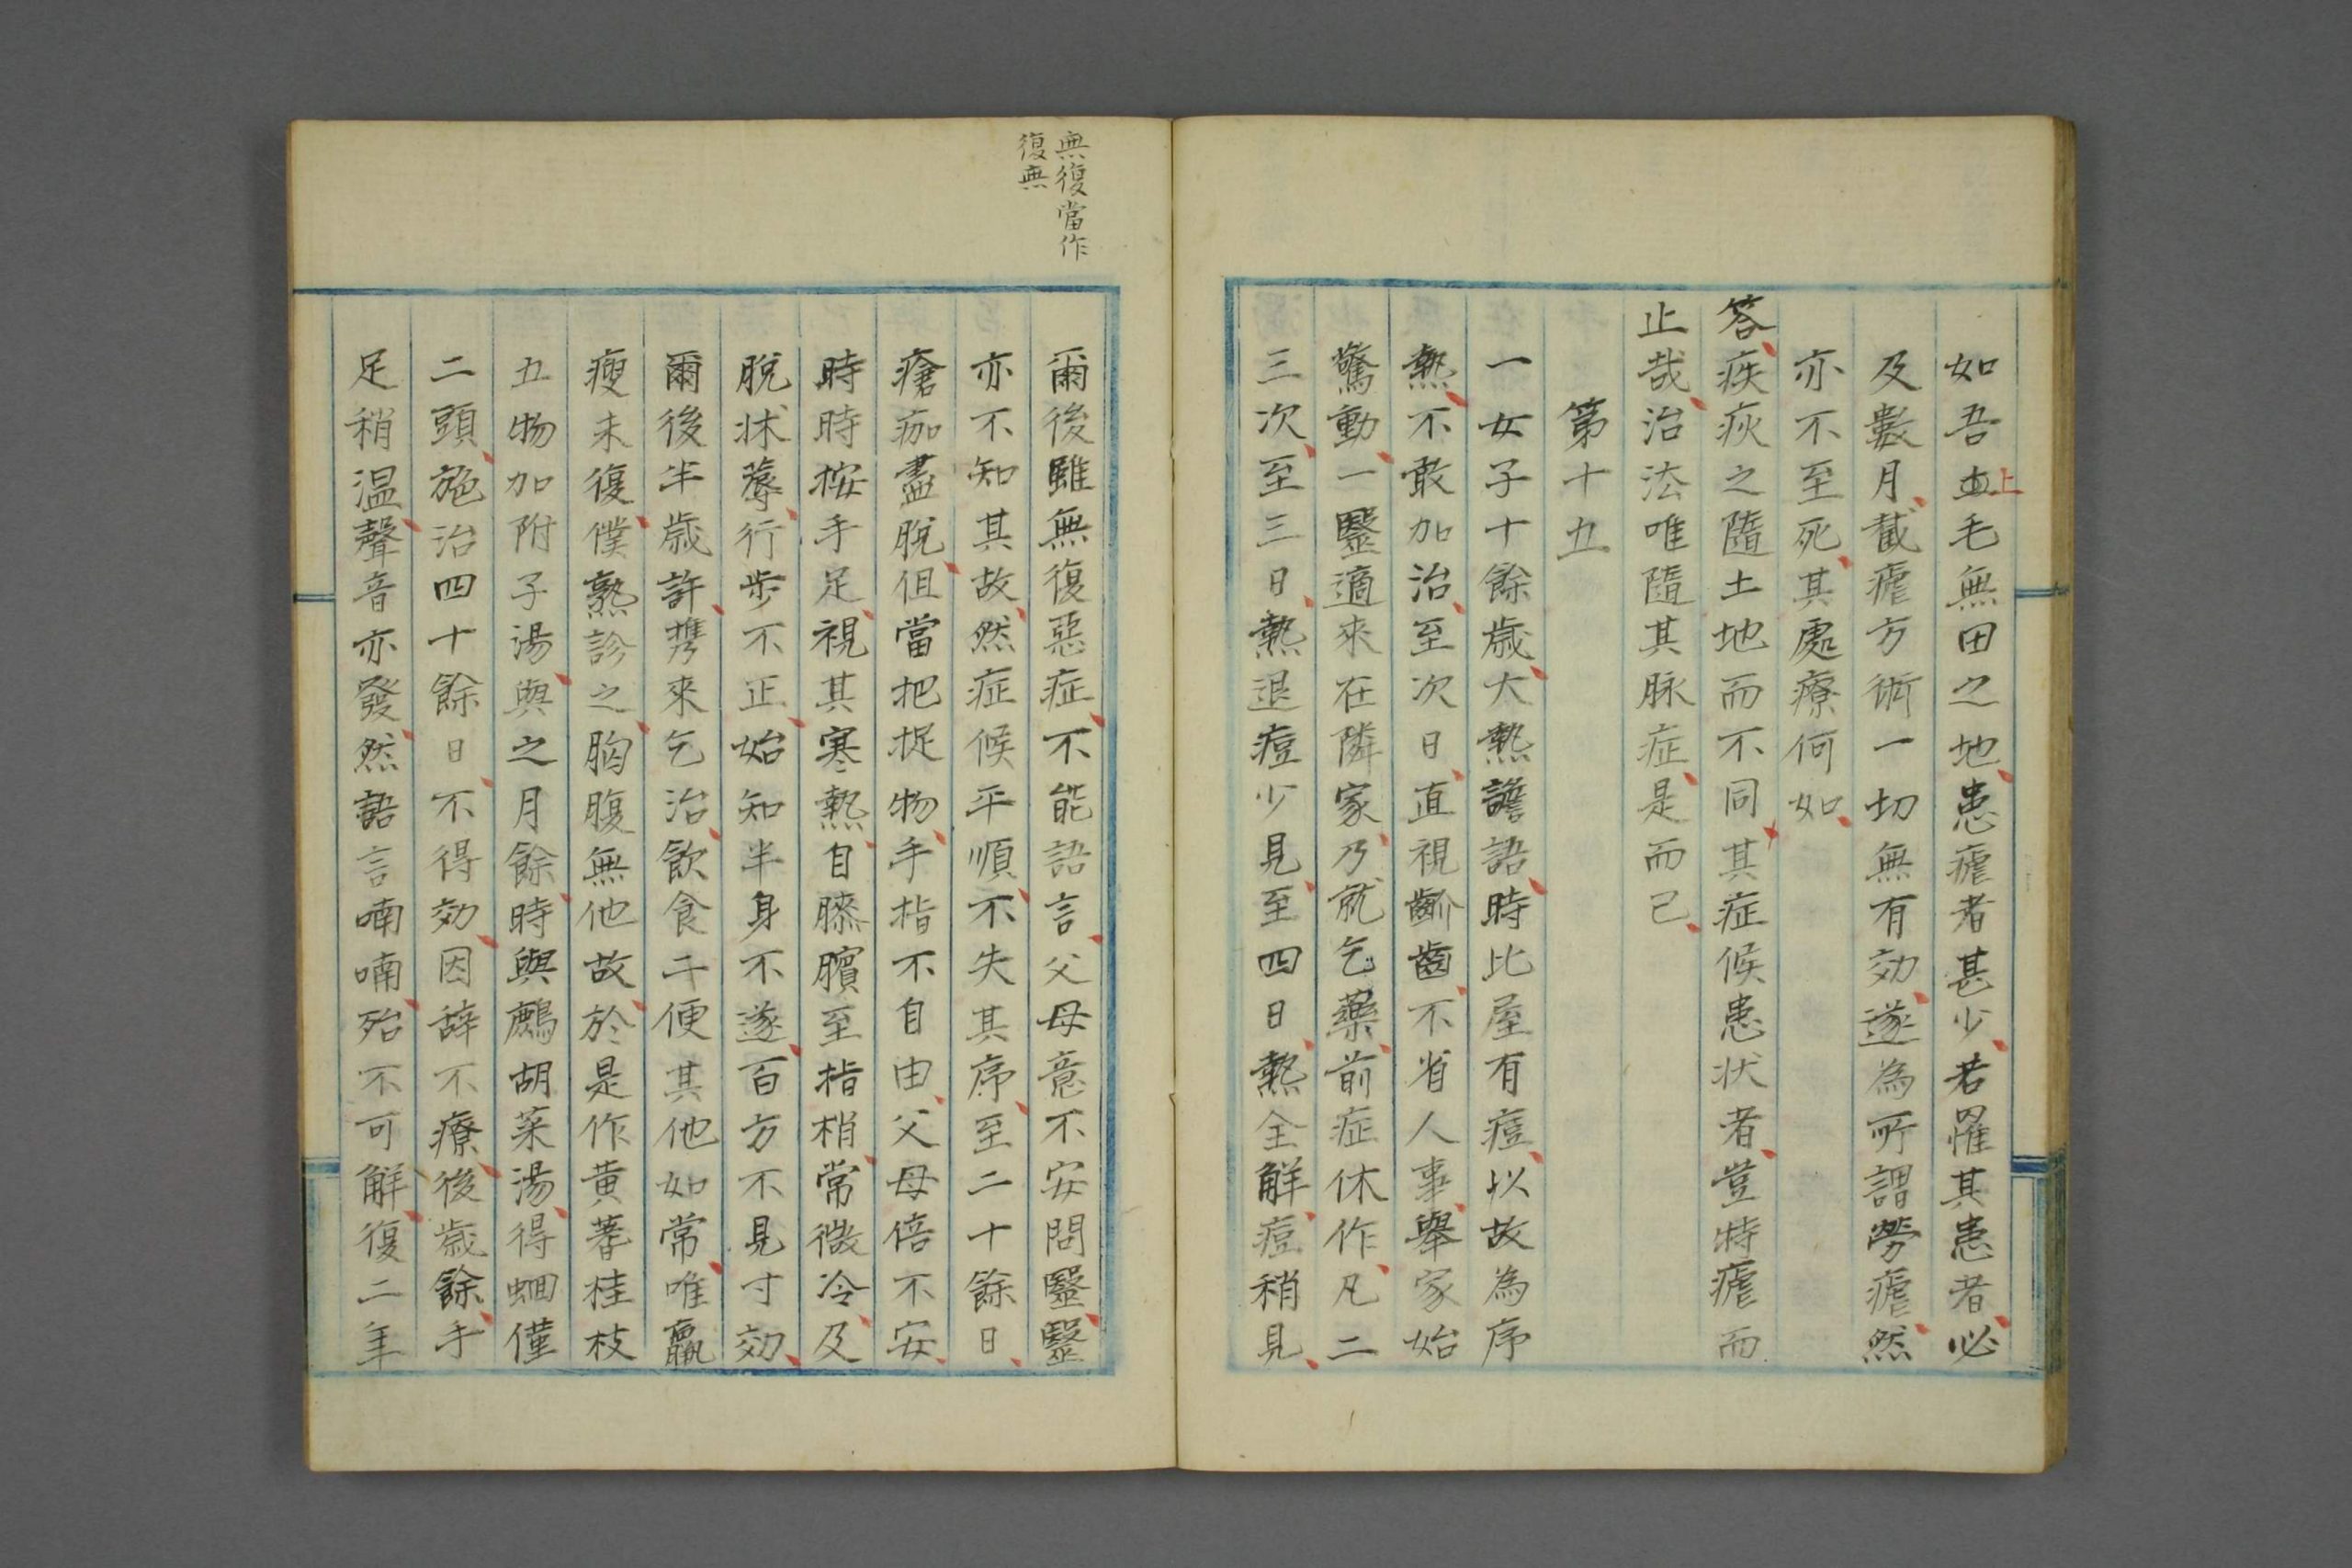 如吾土毛無田之地患瘧者甚少若罹其患者必
上
及數月截瘧方術一切無有効遂為所謂勞瘧然
亦不至死其處療何如
答疾疢之隨土地而不同其症候患状者豈特瘧而
止哉治法唯隨其脉症是而已
第十五
一女子十餘歳大熱譫語時比屋有痘以故為序
熱不敢加治至次日直視齘齒不省人事舉家始
驚動一毉適來在隣家乃就乞藥前症休作凡二
三次至三日熱退痘少見至四日熱全解痘稍見
無復當作
復無
爾後雖無復惡症不能語言父母意不安問毉毉
亦不知其故然症候平順不失其序至二十餘日
瘡痂盡脫但當把捉物手指不自由父母倍不安
時時按手足視其寒熱自膝臏至指梢常微冷及
脫牀蓐行步不正始知半身不遂百方不見寸効
爾後半歳許携來乞治飲食二便其他如常唯羸
瘦未復僕熟診之胸腹無他故於是作黄蓍桂枝
五物加附子湯與之月餘時與鷓胡菜湯得蛔僅
二頭施治四十餘日不得効因辞不療後歳餘手
足稍温聲音亦發然語言喃喃殆不可解復二年